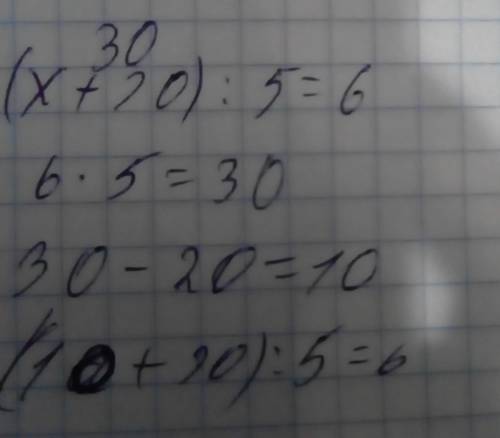 30
(x + 20) : 5 = 6
6 · 5 = 30
30 - 20 = 10
(10 + 20) : 5 = 6